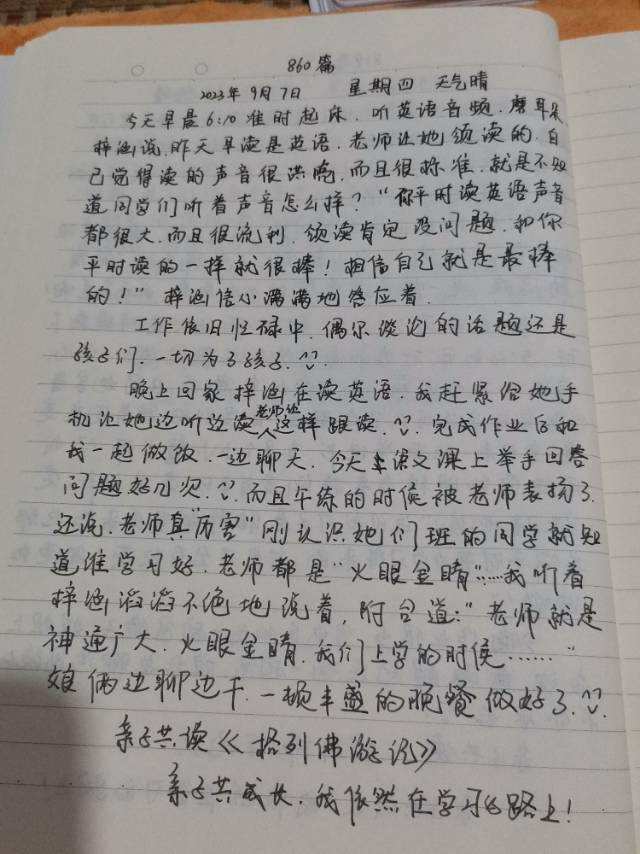 860篇
2023年9月7日 星期四 天气晴
今天早晨6:10准时起床.听英语音频.磨耳朵
梓涵说.昨天早读是英语.老师让她领读的.自
己觉得读的声音很洪亮.而且很标准.就是不知
道同学们听着声音怎么样?"你平时读英语声音
都很大.而且很流利.领读肯定没问题.和你
平时读的一样就很棒!相信自己就是最棒
的!"梓涵信心满满地答应着.
工作依旧忙碌中.偶尔谈论的话题还是
孩子们.一切为了孩子.
晚上回家梓涵在读英语.我赶紧给她手
机让她边听边读.这样跟读.完成作业后和
我一起做饭.一边聊天.今天上语文课上举手回答
问题好几次.而且午练的时候被老师表扬了.
还说.老师真"厉害"刚认识她们班的同学就知
道谁学习好.老师都是"火眼金睛"……我听着
梓涵滔滔不绝地说着,附合道:"老师就是
神通广大.火眼金睛.我们上学的时候……"
娘俩边聊边干.一顿丰盛的晚餐做好了.
亲子共读《格列佛游记》
亲子共成长.我依然在学习的路上!